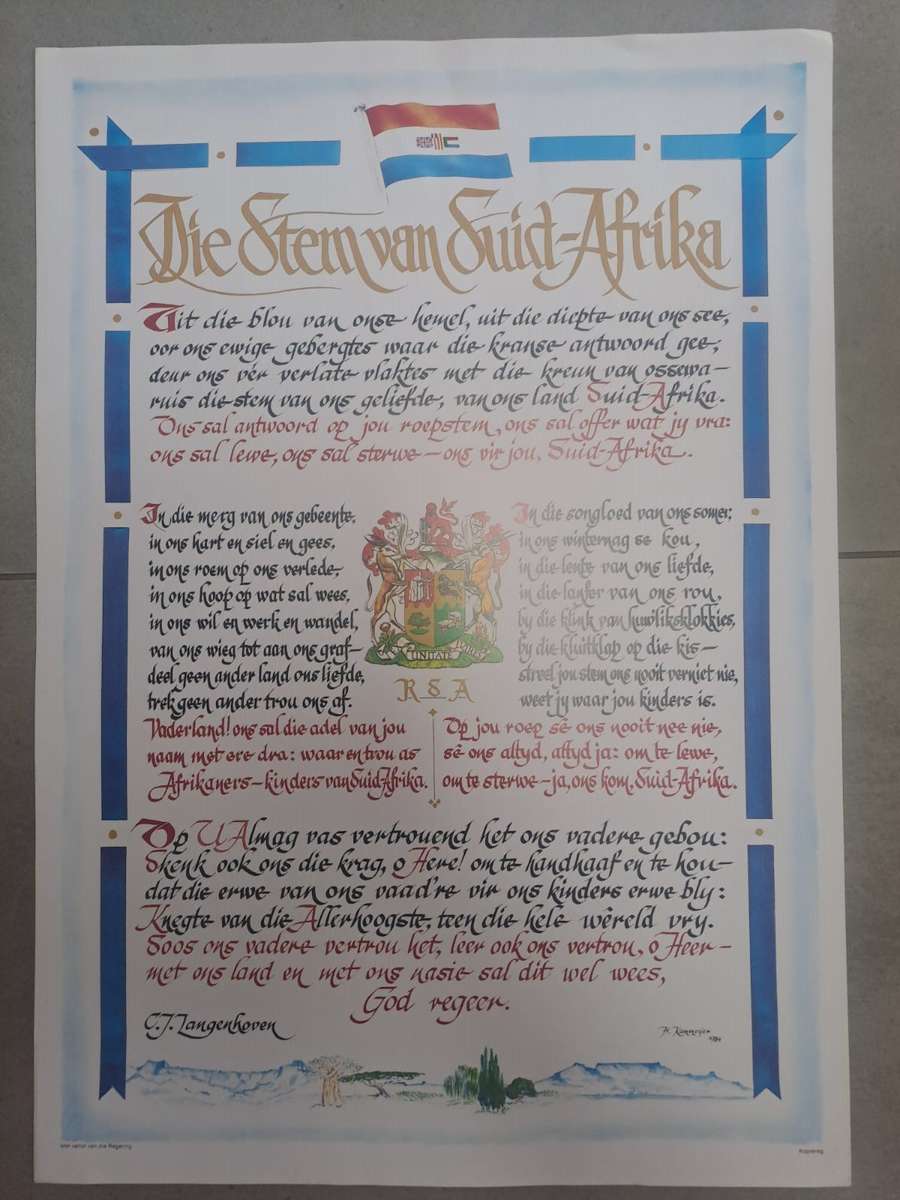 Die Stem van Suid-Afrika
Uit die blou van onse hemel, uit die diepte van ons see,
oor ons ewige gebergtes waar die kranse antwoord gee,
deur ons vêr verlate vlaktes met die kreun van ossewa-
ruis die stem van ons geliefde, van ons land Suid-Afrika.
Ons sal antwoord op jou roepstem, ons sal offer wat jy vra:
ons sal lewe, ons sal sterwe - ons vir jou, Suid-Afrika.
In die merg van ons gebeente,
in ons hart en siel en gees,
in ons roem op ons verlede,
in ons hoop op wat sal wees,
in ons wil en werk en wandel,
van ons wieg tot aan ons graf-
deel geen ander land ons liefde,
trek geen ander trou ons af.
Vaderland! ons sal die adel van jou
naam met ere dra: waar en trou as
Afrikaners - kinders van Suid-Afrika.
In die songloed van ons somer,
in ons winternag se kou,
in die lente van ons liefde,
in die lanfer van ons rou,
by die klink van huwliksklokkies,
by die kluitklap op die kis-
streel jou stem ons nooit verniet nie,
weet jy waar jou kinders is.
Op jou roep sê ons nooit nee nie,
sê ons altyd, altyd ja: om te lewe,
om te sterwe - ja, ons kom, Suid-Afrika.
UNITATE VIRES
R S A
Op U Almag vas vertrouend het ons vadere gebou:
Skenk ook ons die krag, o Here! om te handhaaf en te hou-
dat die erwe van ons vaad're vir ons kinders erwe bly:
Knegte van die Allerhoogste, teen die hele wêreld vry.
Soos ons vadere vertrou het, leer ook ons vertrou, o Heer-
met ons land en met ons nasie sal dit wel wees,
God regeer.
C.J. Langenhoven
van die Regering
Kopiereg